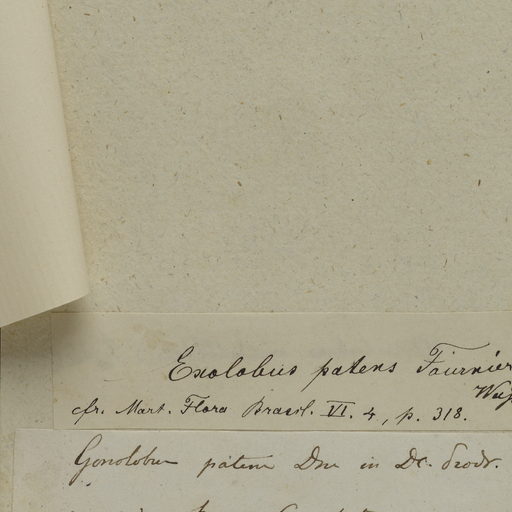 Exolobus patens Fournier
cfr. Mart. Flora Brasil. VI. 4, p. 318.
Gonolobus patens Dne in DC. Prodr.